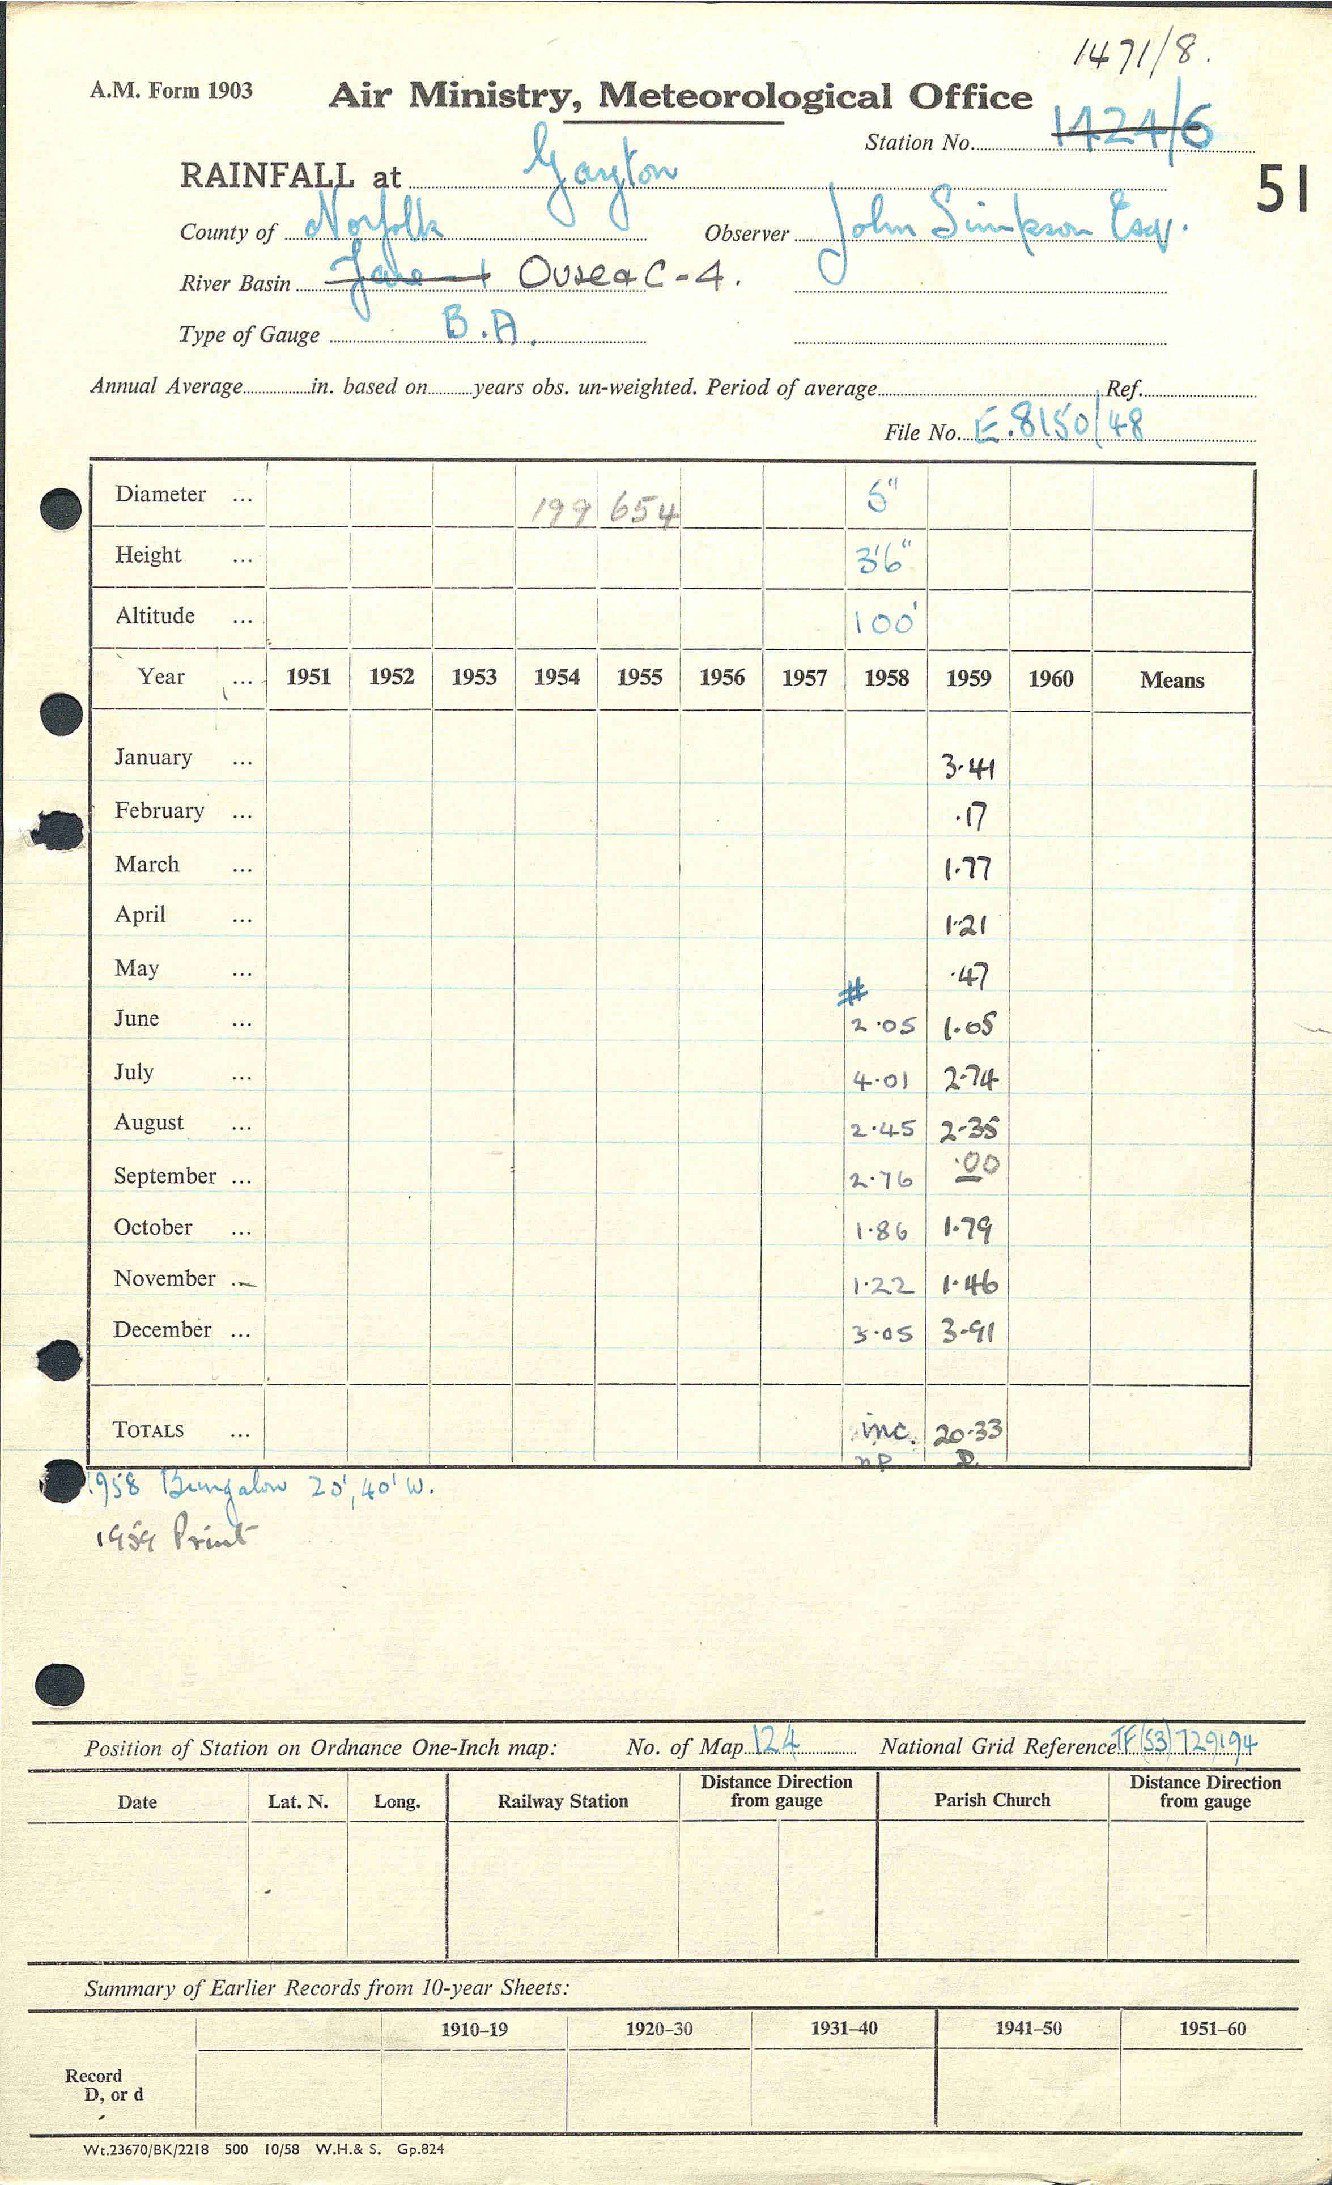 1471/8.
A.M. Form 1903 Air Ministry, Meteorological Office
Station No. 1424/6
RAINFALL at Gayton
51
County of Norfolk Observer John Simpson Esq.
River Basin Yare Ouse & C - 4.
Type of Gauge B.A.
Annual Average in. based on years obs. un-weighted. Period of average Ref.
File No. E.8150/48
Diameter ... 199 654 5"
Height ... 3'6"
Altitude ... 100'
Year ... 1951 1952 1953 1954 1955 1956 1957 1958 1959 1960 Means
January ... 3.41
February ... .17
March ... 1.77
April ... 1.21
May ... .47
#
June ... 2.05 1.05
July ... 4.01 2.74
August ... 2.45 2.35
September ... 2.76 .00
October ... 1.86 1.79
November ... 1.22 1.46
December ... 3.05 3.91
TOTALS ... inc. 20.33
n P D.
1958 Bungalow 20', 40' W.
1959 Print
Position of Station on Ordnance One-Inch map: No. of Map 124 National Grid Reference TF(53)729194
Date Lat. N. Long. Railway Station Distance Direction from gauge Parish Church Distance Direction from gauge
Summary of Earlier Records from 10-year Sheets:
1910–19 1920–30 1931–40 1941–50 1951–60
Record
D, or d
Wt.23670/BK/2218 500 10/58 W.H.& S. Gp.824